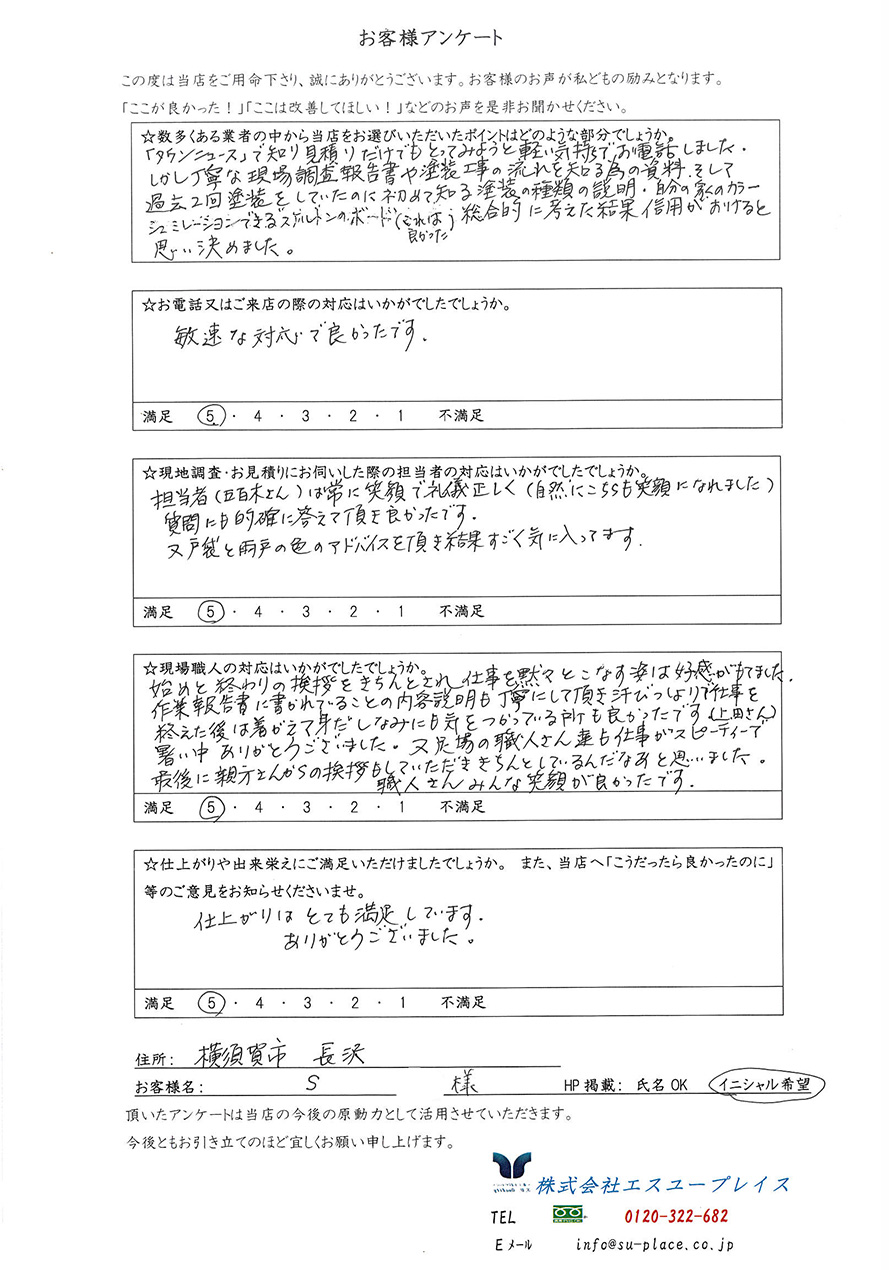 お客様アンケート
この度は当店をご用命下さり、誠にありがとうございます。お客様のお声が私どもの励みとなります。
「ここが良かった！」「ここは改善してほしい！」などのお声を是非お聞かせください。
☆数多くある業者の中から当店をお選びいただいたポイントはどのような部分でしょうか。
「タウンニュース」で知り見積りだけでもとってみようと軽い気持ちでお電話しました.
しかし丁寧な現場調査報告書や塗装工事の流れを知る為の資料.そして
過去2回塗装をしていたのに初めて知る塗装の種類の説明.自分の家のカラー
シュミレーションできるスケルトンのボード(これは良かった)総合的に考えた結果信用がおけると
思い決めました。
☆お電話又はご来店の際の対応はいかがでしたでしょうか。
敏速な対応で良かったです.
満足 5 ・ 4 ・ 3 ・ 2 ・ 1 不満足
☆現地調査・お見積りにお伺いした際の担当者の対応はいかがでしたでしょうか。
担当者(五百木さん)は常に笑顔で礼儀正しく(自然にこちらも笑顔になれました)
質問にも的確に答えて頂き良かったです.
又戸袋と雨戸の色のアドバイスを頂き結果すごく気に入ってます.
満足 5 ・ 4 ・ 3 ・ 2 ・ 1 不満足
☆現場職人の対応はいかがでしたでしょうか。
始めと終わりの挨拶をきちんとされ仕事を黙々とこなす姿は好感がもてました.
作業報告書に書かれていることの内容説明も丁寧にして頂き汗びっしょりで仕事を
終えた後は着がえて身だしなみにも気をつかっている所も良かったです(上田さん)
暑い中ありがとうございました。又足場の職人さん達も仕事がスピーディーで
最後に親方さんからの挨拶もしていただききちんとしているんだなあと思いました。
職人さんみんな笑顔が良かったです.
満足 5 ・ 4 ・ 3 ・ 2 ・ 1 不満足
☆仕上がりや出来栄えにご満足いただけましたでしょうか。 また、当店へ「こうだったら良かったのに」
等のご意見をお知らせくださいませ。
仕上がりはとても満足しています.
ありがとうございました。
満足 5 ・ 4 ・ 3 ・ 2 ・ 1 不満足
住所: 横須賀市 長沢
お客様名: S 様 HP掲載: 氏名OK イニシャル希望
頂いたアンケートは当店の今後の原動力として活用させていただきます。
今後ともお引き立てのほど宜しくお願い申し上げます。
株式会社エスユープレイス
TEL 0120-322-682
Eメール info@su-place.co.jp